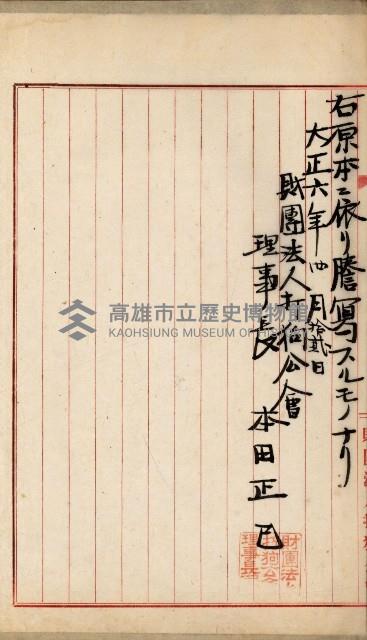 右原本ニ依リ謄寫スルモノナリ
大正六年四月拾貳日
財團法人打狗公會
理事長 本田正己
財團法人打狗公會理事長
高雄市立歷史博物館
KAOHSIUNG MUSEUM OF HISTORY